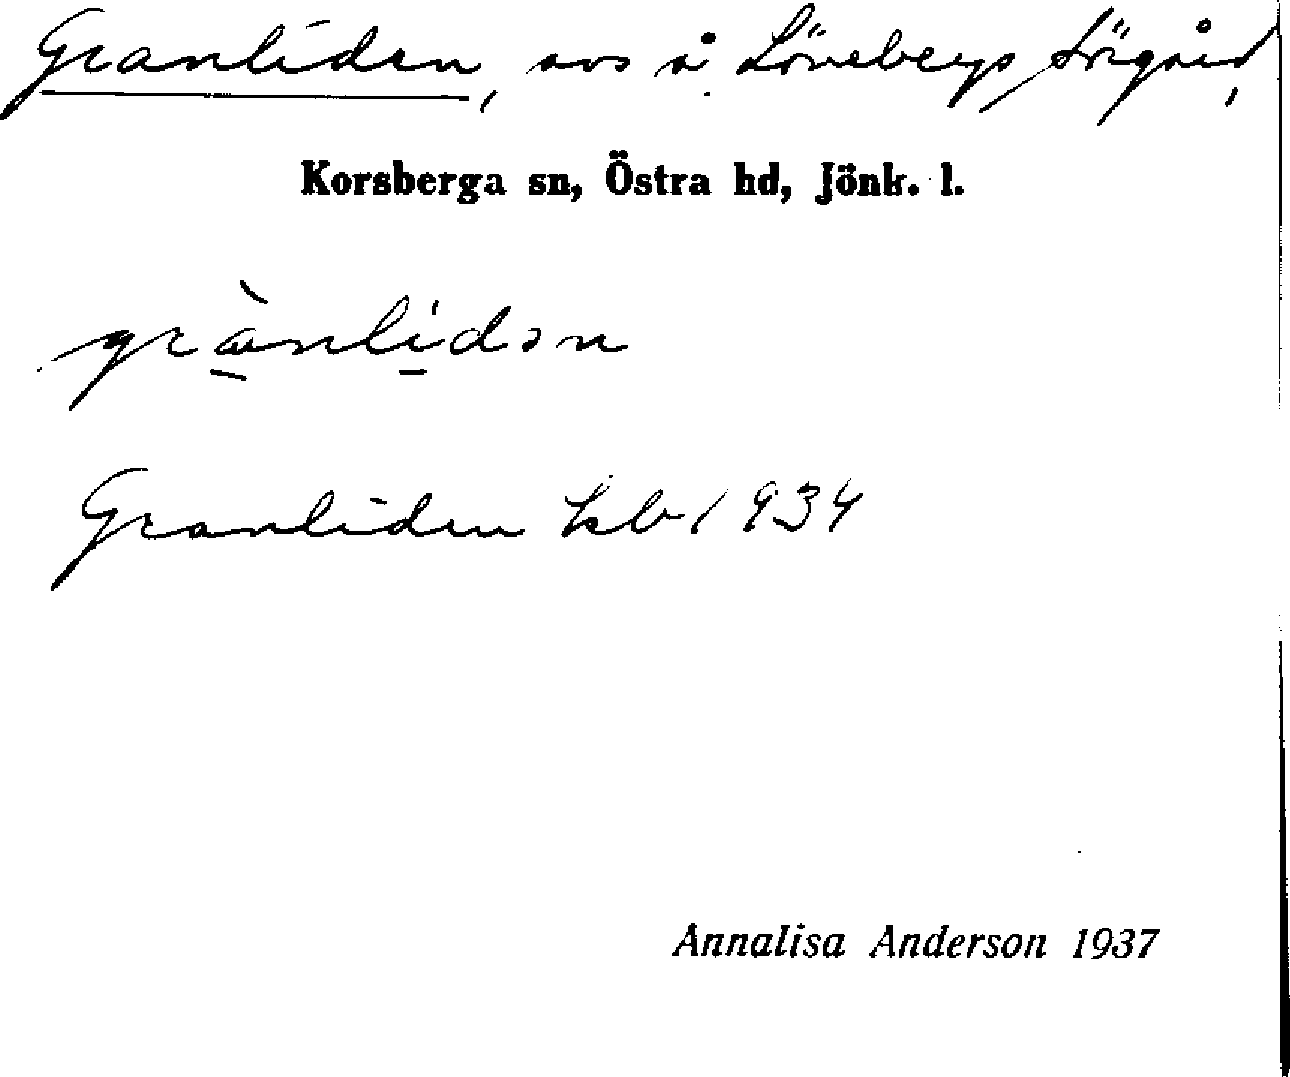 Granliden, avs å Löveberga Sörgård,
Korsberga sn, Östra hd, Jönk. l.
grànlidən
Granliden kb 1934
Annalisa Anderson 1937